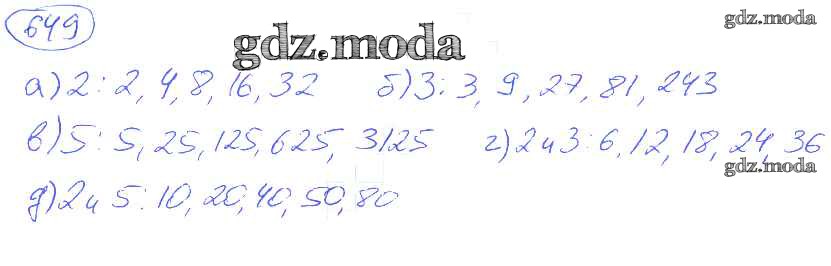 649
gdz.moda
gdz.moda
а) 2: 2, 4, 8, 16, 32 б) 3: 3, 9, 27, 81, 243
в) 5: 5, 25, 125, 625, 3125 г) 2 и 3: 6, 12, 18, 24, 36
gdz.moda
д) 2 и 5: 10, 20, 40, 50, 80